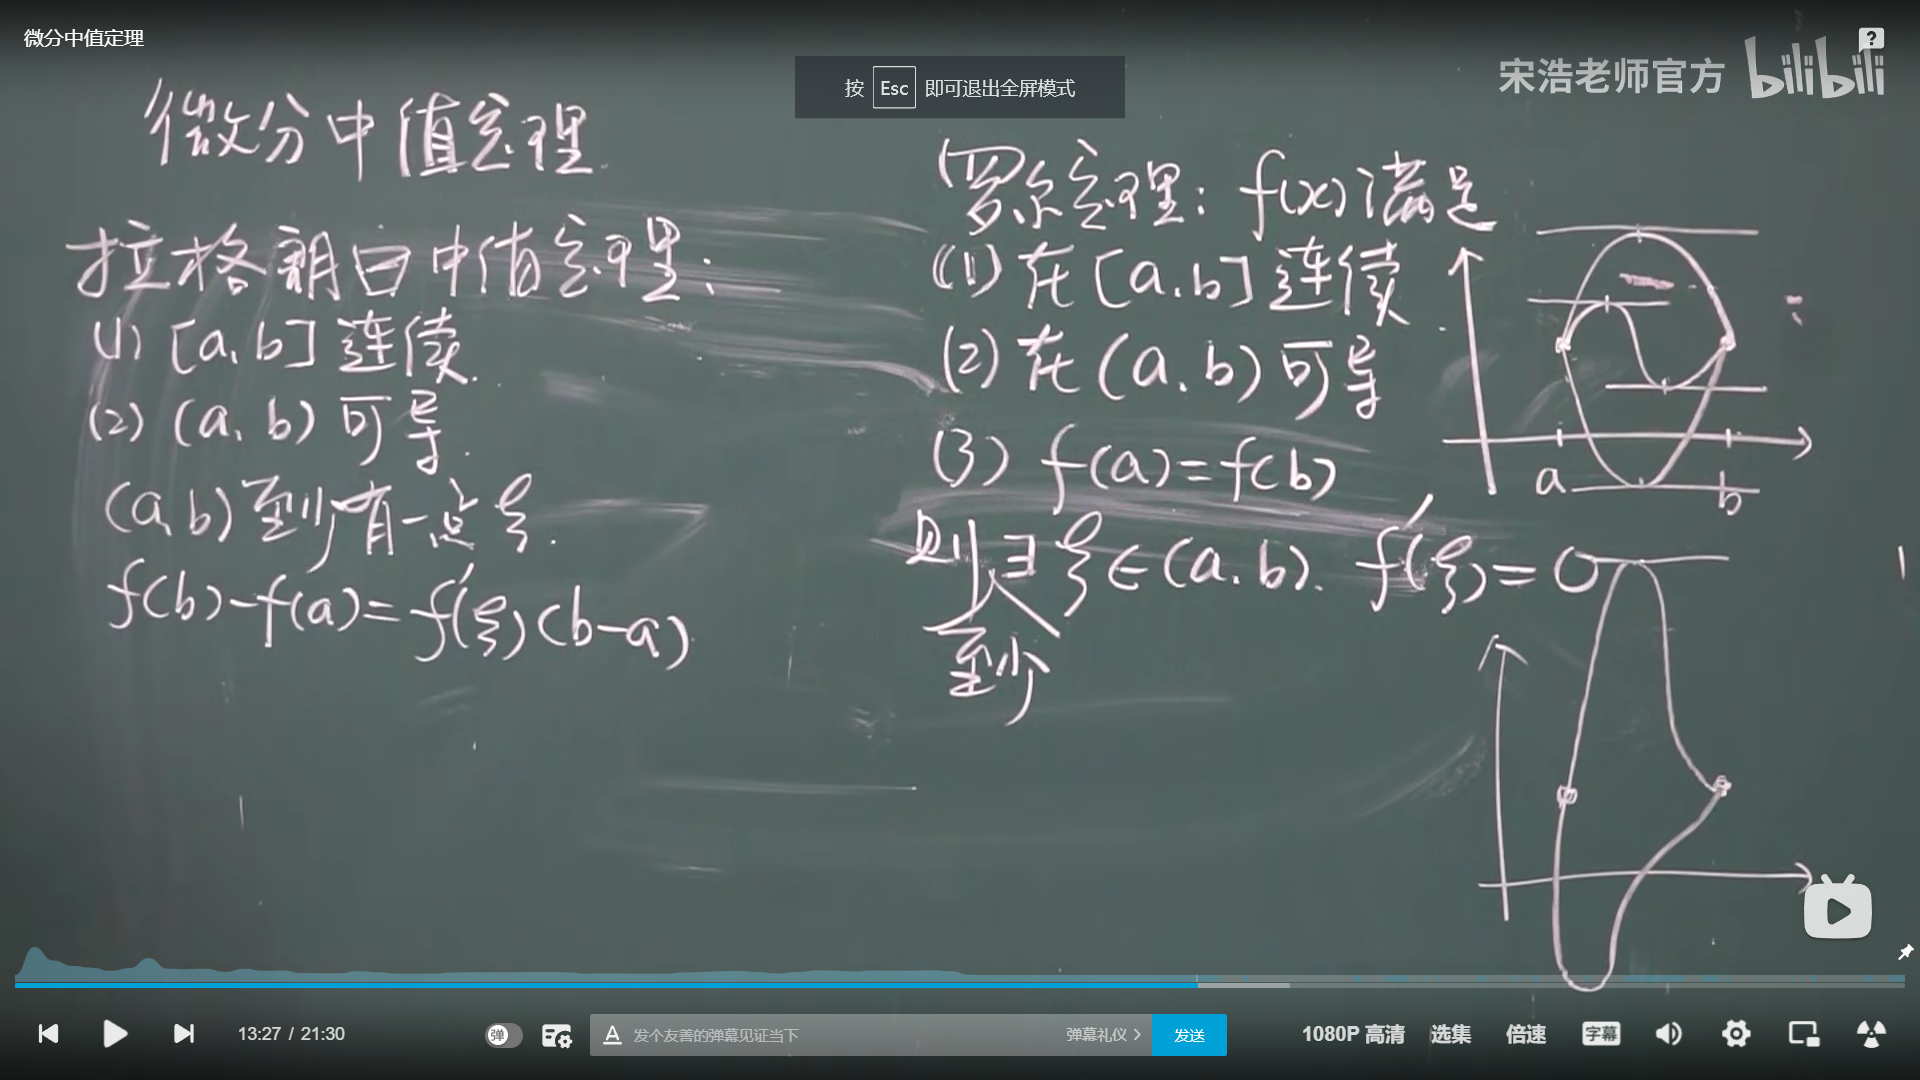 微分中值定理
按 Esc 即可退出全屏模式
宋浩老师官方 bilibili
?
微分中值定理
拉格朗日中值定理:
(1) [a,b] 连续.
(2) (a,b) 可导.
(a,b) 至少有一点ξ.
f(b)-f(a)=f'(ξ)(b-a)
罗尔定理: f(x)满足
(1) 在[a,b]连续.
(2) 在(a,b)可导
(3) f(a)=f(b)
则∃ξ∈(a,b). f'(ξ)=0
至少
a
b
13:27 / 21:30
弹
A 发个友善的弹幕见证当下
弹幕礼仪 >
发送
1080P 高清
选集
倍速
字幕